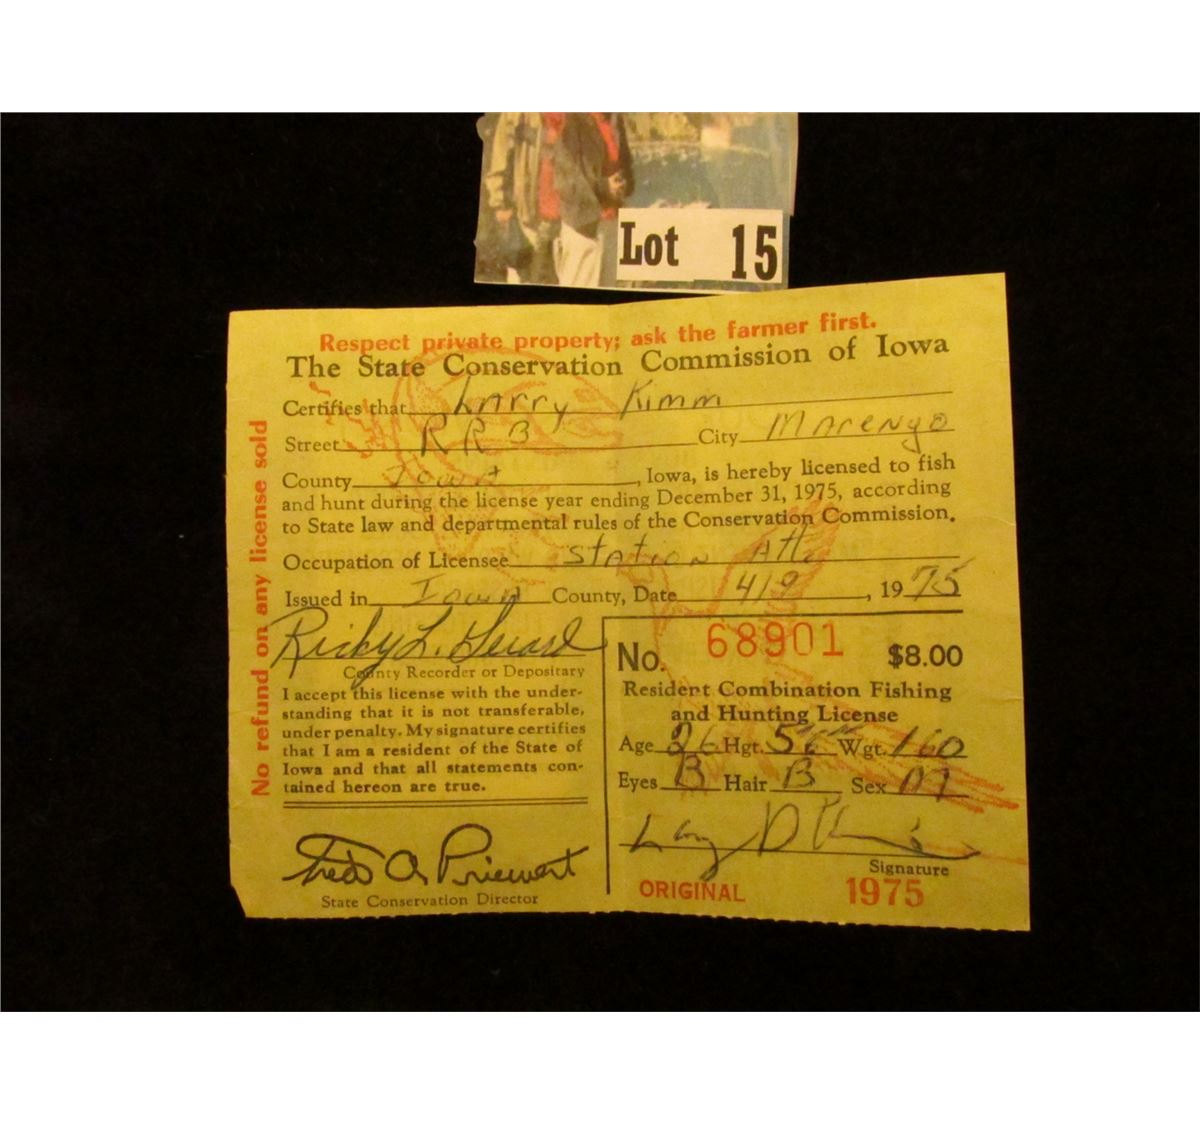 Lot 15
Respect private property; ask the farmer first.
The State Conservation Commission of Iowa
Certifies that Larry Kimm
Street RR3 City Marengo
County Iowa, Iowa, is hereby licensed to fish
and hunt during the license year ending December 31, 1975, according
to State law and departmental rules of the Conservation Commission.
Occupation of Licensee Station Att.
Issued in Iowa County, Date 4/9, 1975
Ricky L.
County Recorder or Depositary
I accept this license with the under-
standing that it is not transferable,
under penalty. My signature certifies
that I am a resident of the State of
Iowa and that all statements con-
tained hereon are true.
Fred A. Priewert
State Conservation Director
No. 68901 $8.00
Resident Combination Fishing
and Hunting License
Age 26 Hgt. Wgt. 160
Eyes B Hair B Sex M
Larry D
Signature
ORIGINAL 1975
No refund on any license sold